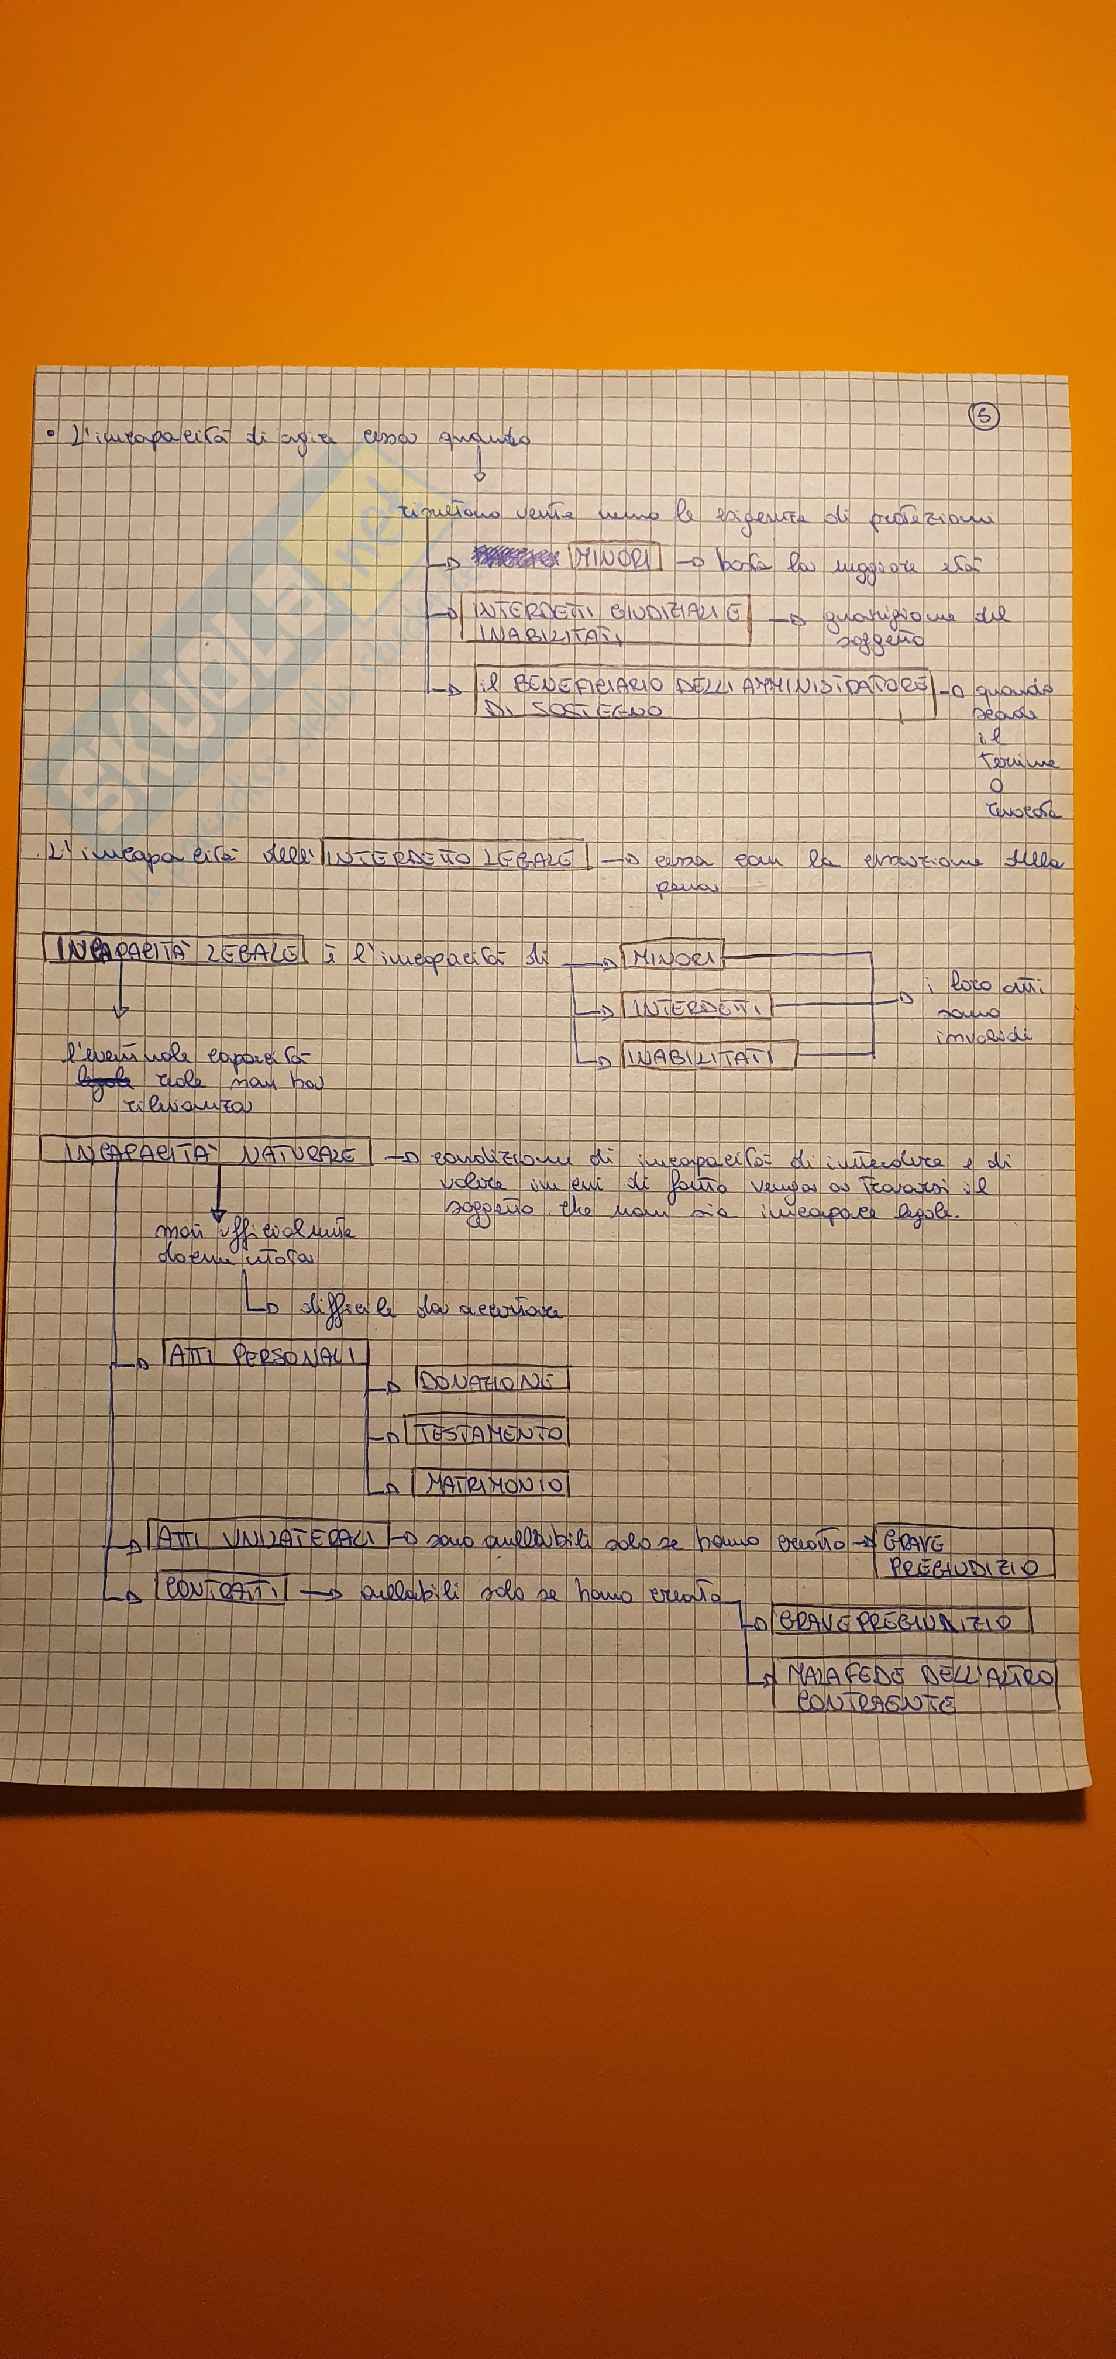 5
• L'incapacità di agire cessa quando
risultano venute meno le esigenze di protezione
MINORI → basta la maggiore età
INTERDETTI GIUDIZIALI E → guarigione del
INABILITATI soggetto
il BENEFICIARIO DELL'AMMINISTRATORE → quando
DI SOSTEGNO scade
il
termine
o
revocata
L'incapacità dell'INTERDETTO LEGALE → cessa con la esecuzione della
pena
INCAPACITÀ LEGALE è l'incapacità di → MINORI
→ INTERDETTI
→ INABILITATI
→ i loro atti
sono
invalidi
l'eventuale capacità
legale reale non ha
rilevanza
INCAPACITÀ NATURALE → condizione di incapacità di intendere e di
volere in cui di fatto venga a trovarsi il
soggetto che non sia incapace legale.
non ufficialmente
documentata
→ difficile da accertare
→ ATTI PERSONALI
→ DONAZIONE
→ TESTAMENTO
→ MATRIMONIO
→ ATTI UNILATERALI → sono annullabili solo se hanno creato → GRAVE
PREGIUDIZIO
→ CONTRATTI → annullabili solo se hanno creato
→ GRAVE PREGIUDIZIO
→ MALAFEDE DELL'ALTRO
CONTRAENTE
SKUOLA.net